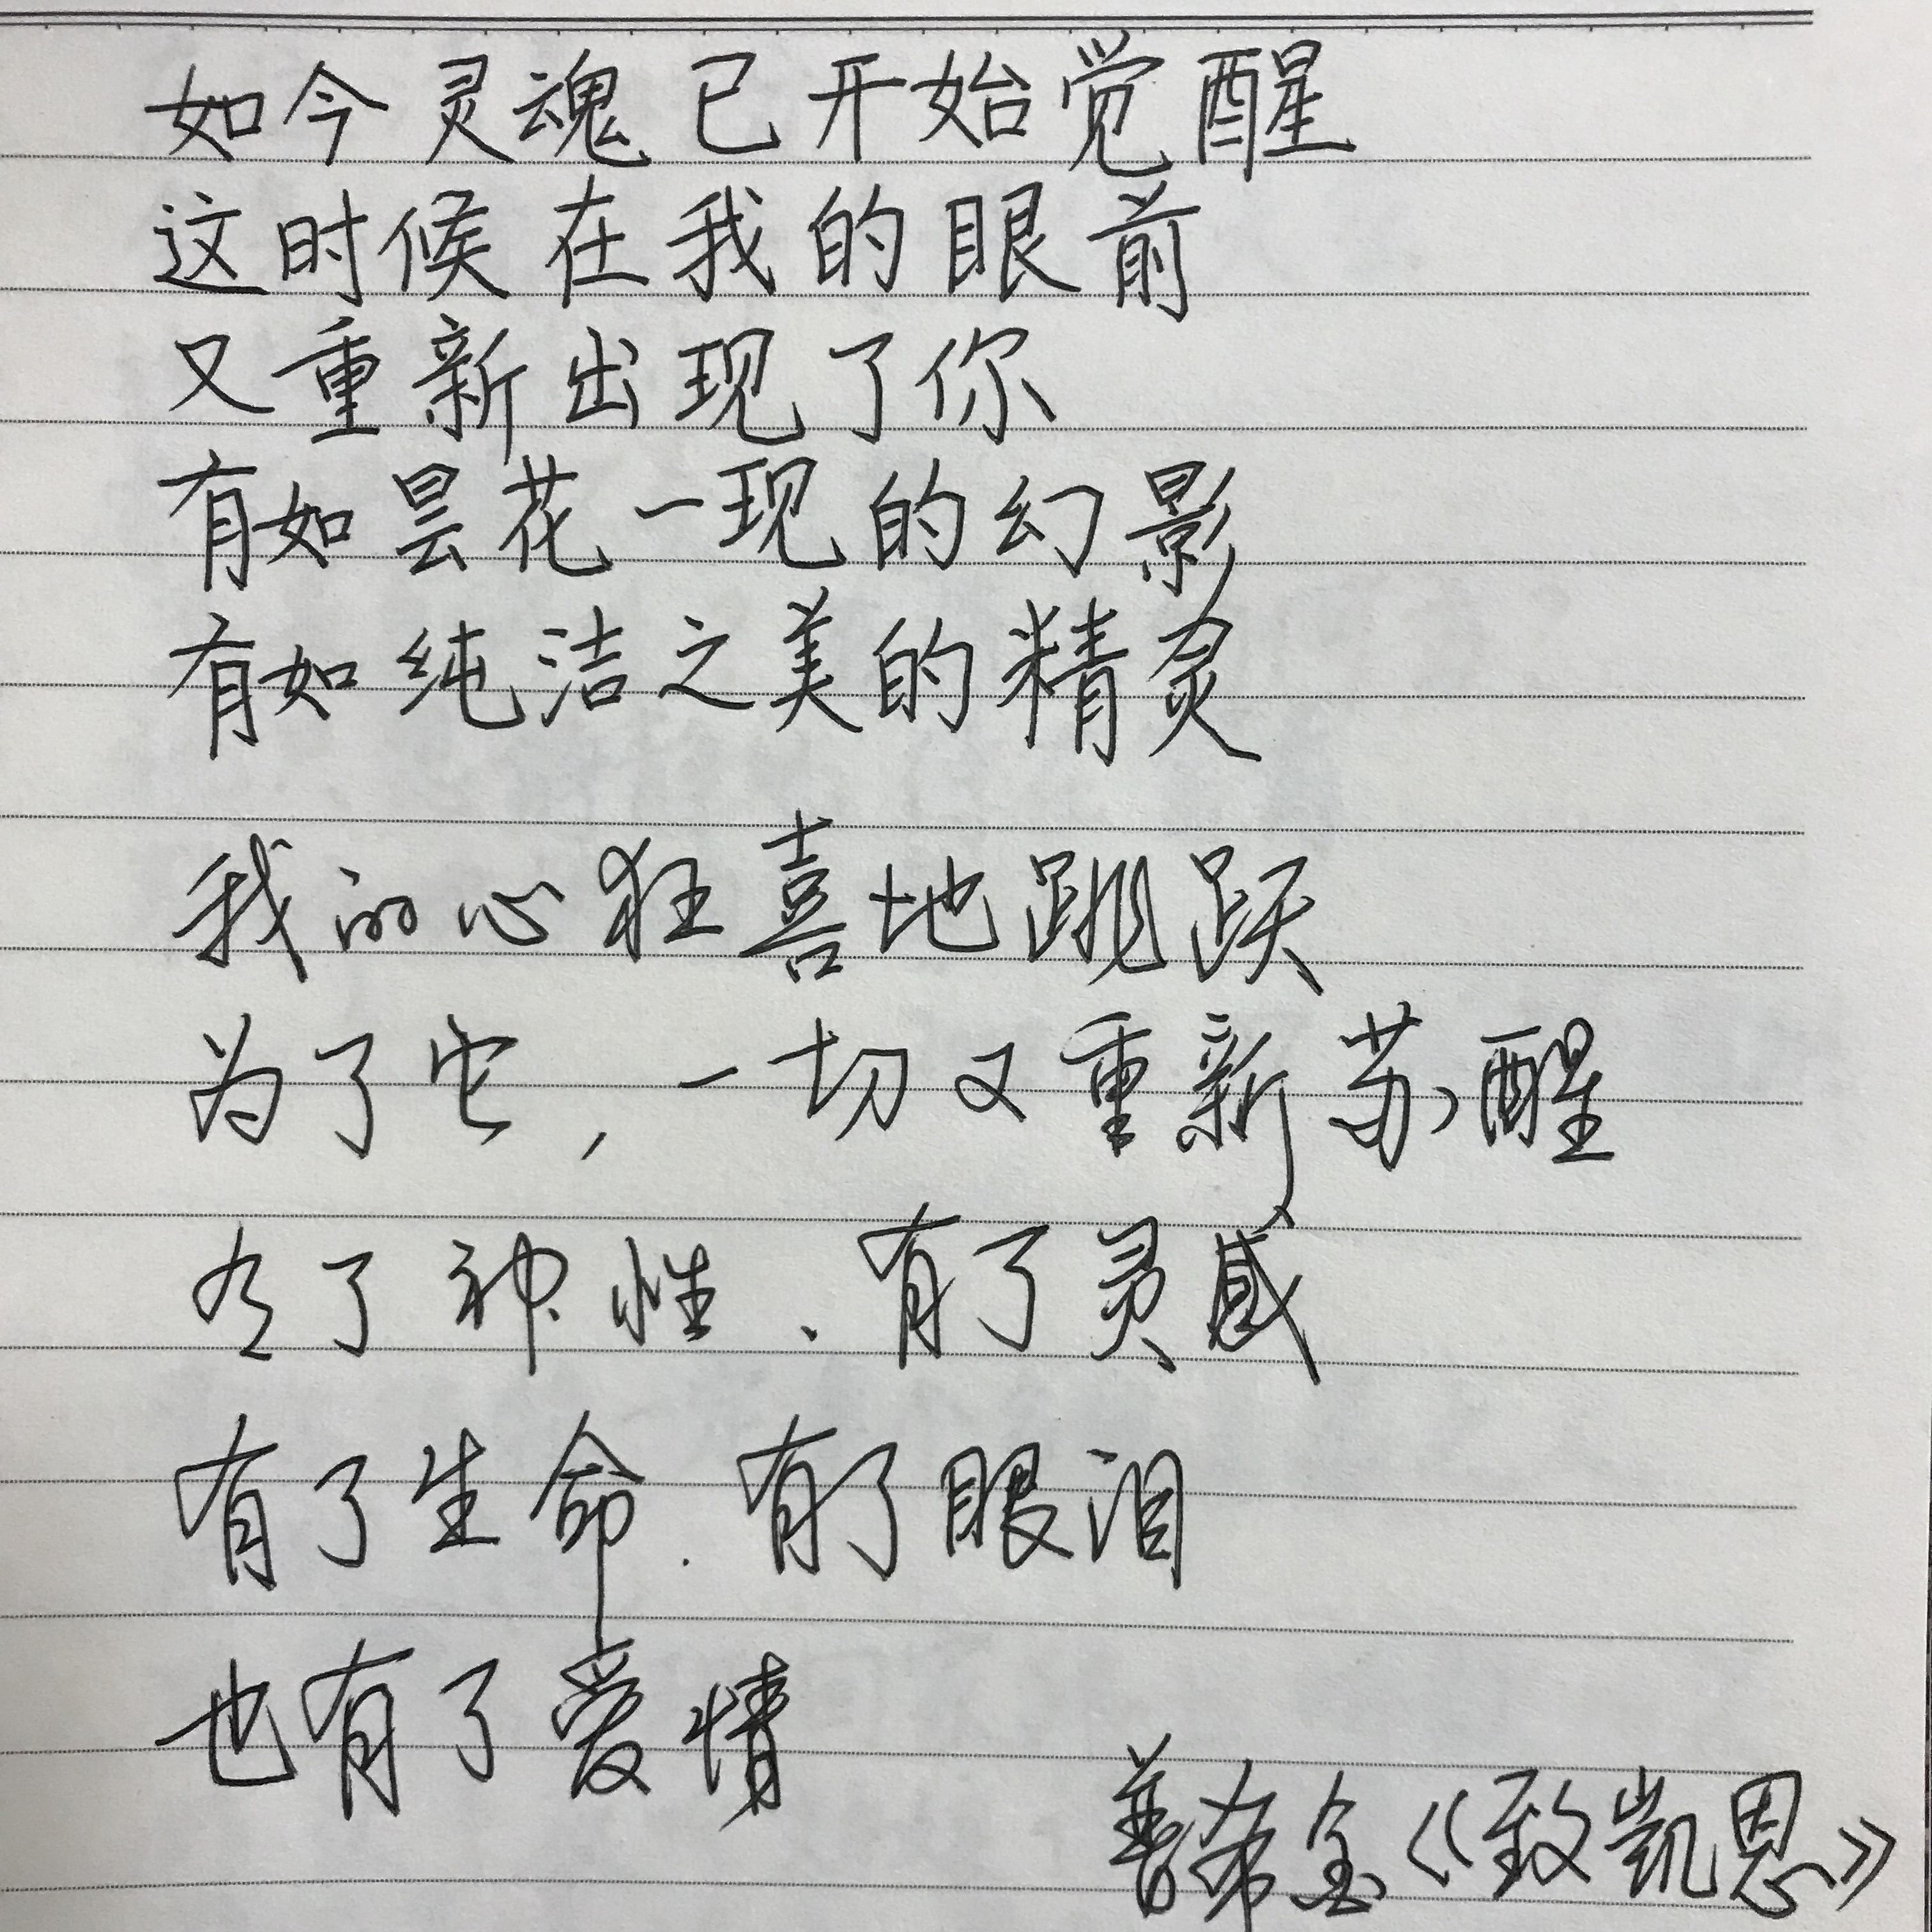 如今灵魂已开始觉醒
这时候在我的眼前
又重新出现了你
有如昙花一现的幻影
有如纯洁之美的精灵
我的心狂喜地跳跃
为了它，一切又重新苏醒
有了神性、有了灵感
有了生命.有了眼泪
也有了爱情
普希金《致凯恩》